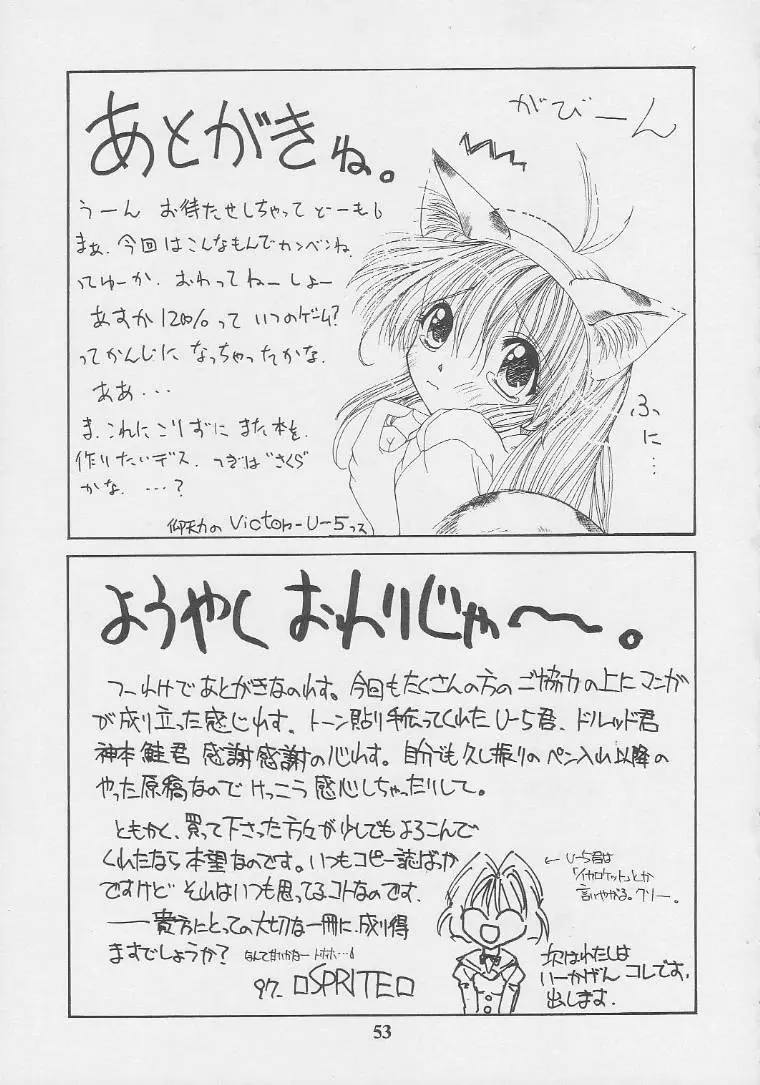 あとがきね。
がびーん
うーん お待たせしちゃって どーも
まぁ、今回はこんなもんでカンベンね
ってゆーか、おわってねーしょー
あすか120%って いつのゲーム?
ってかんじに なっちゃったかな。
ああ・・・
ま、これにこりずに また本を
作りたいデス. つぎは"さくら"
かな. ・・・?
ふに…
Victor-U-5
ようやく おわりじゃ〜〜。
つーわけであとがきなのれす。今回もたくさんの方のご協力の上にマンガ
が成り立った感じれす、トーン貼り手伝ってくれたU-5君、ドルッド君
神本鮭君 感謝感謝の心れす。自分でも久し振りのペン入れ以降の
やった原稿なので けっこう感心しちゃったりして。
ともかく、買って下さった方々が少しでもよろこんで
くれたなら本望なのです。いつもコピー誌ばっか
ですけど それはいつも思ってるコトなのです。
――貴方にとっての大切な一冊に、成り得
ますでしょうか?
97- □SPRITE□
← U-5君は
「イカロケット」とか
言いやがる。クリー。
次はわたしは
いーかげん コレです。
出します.
53